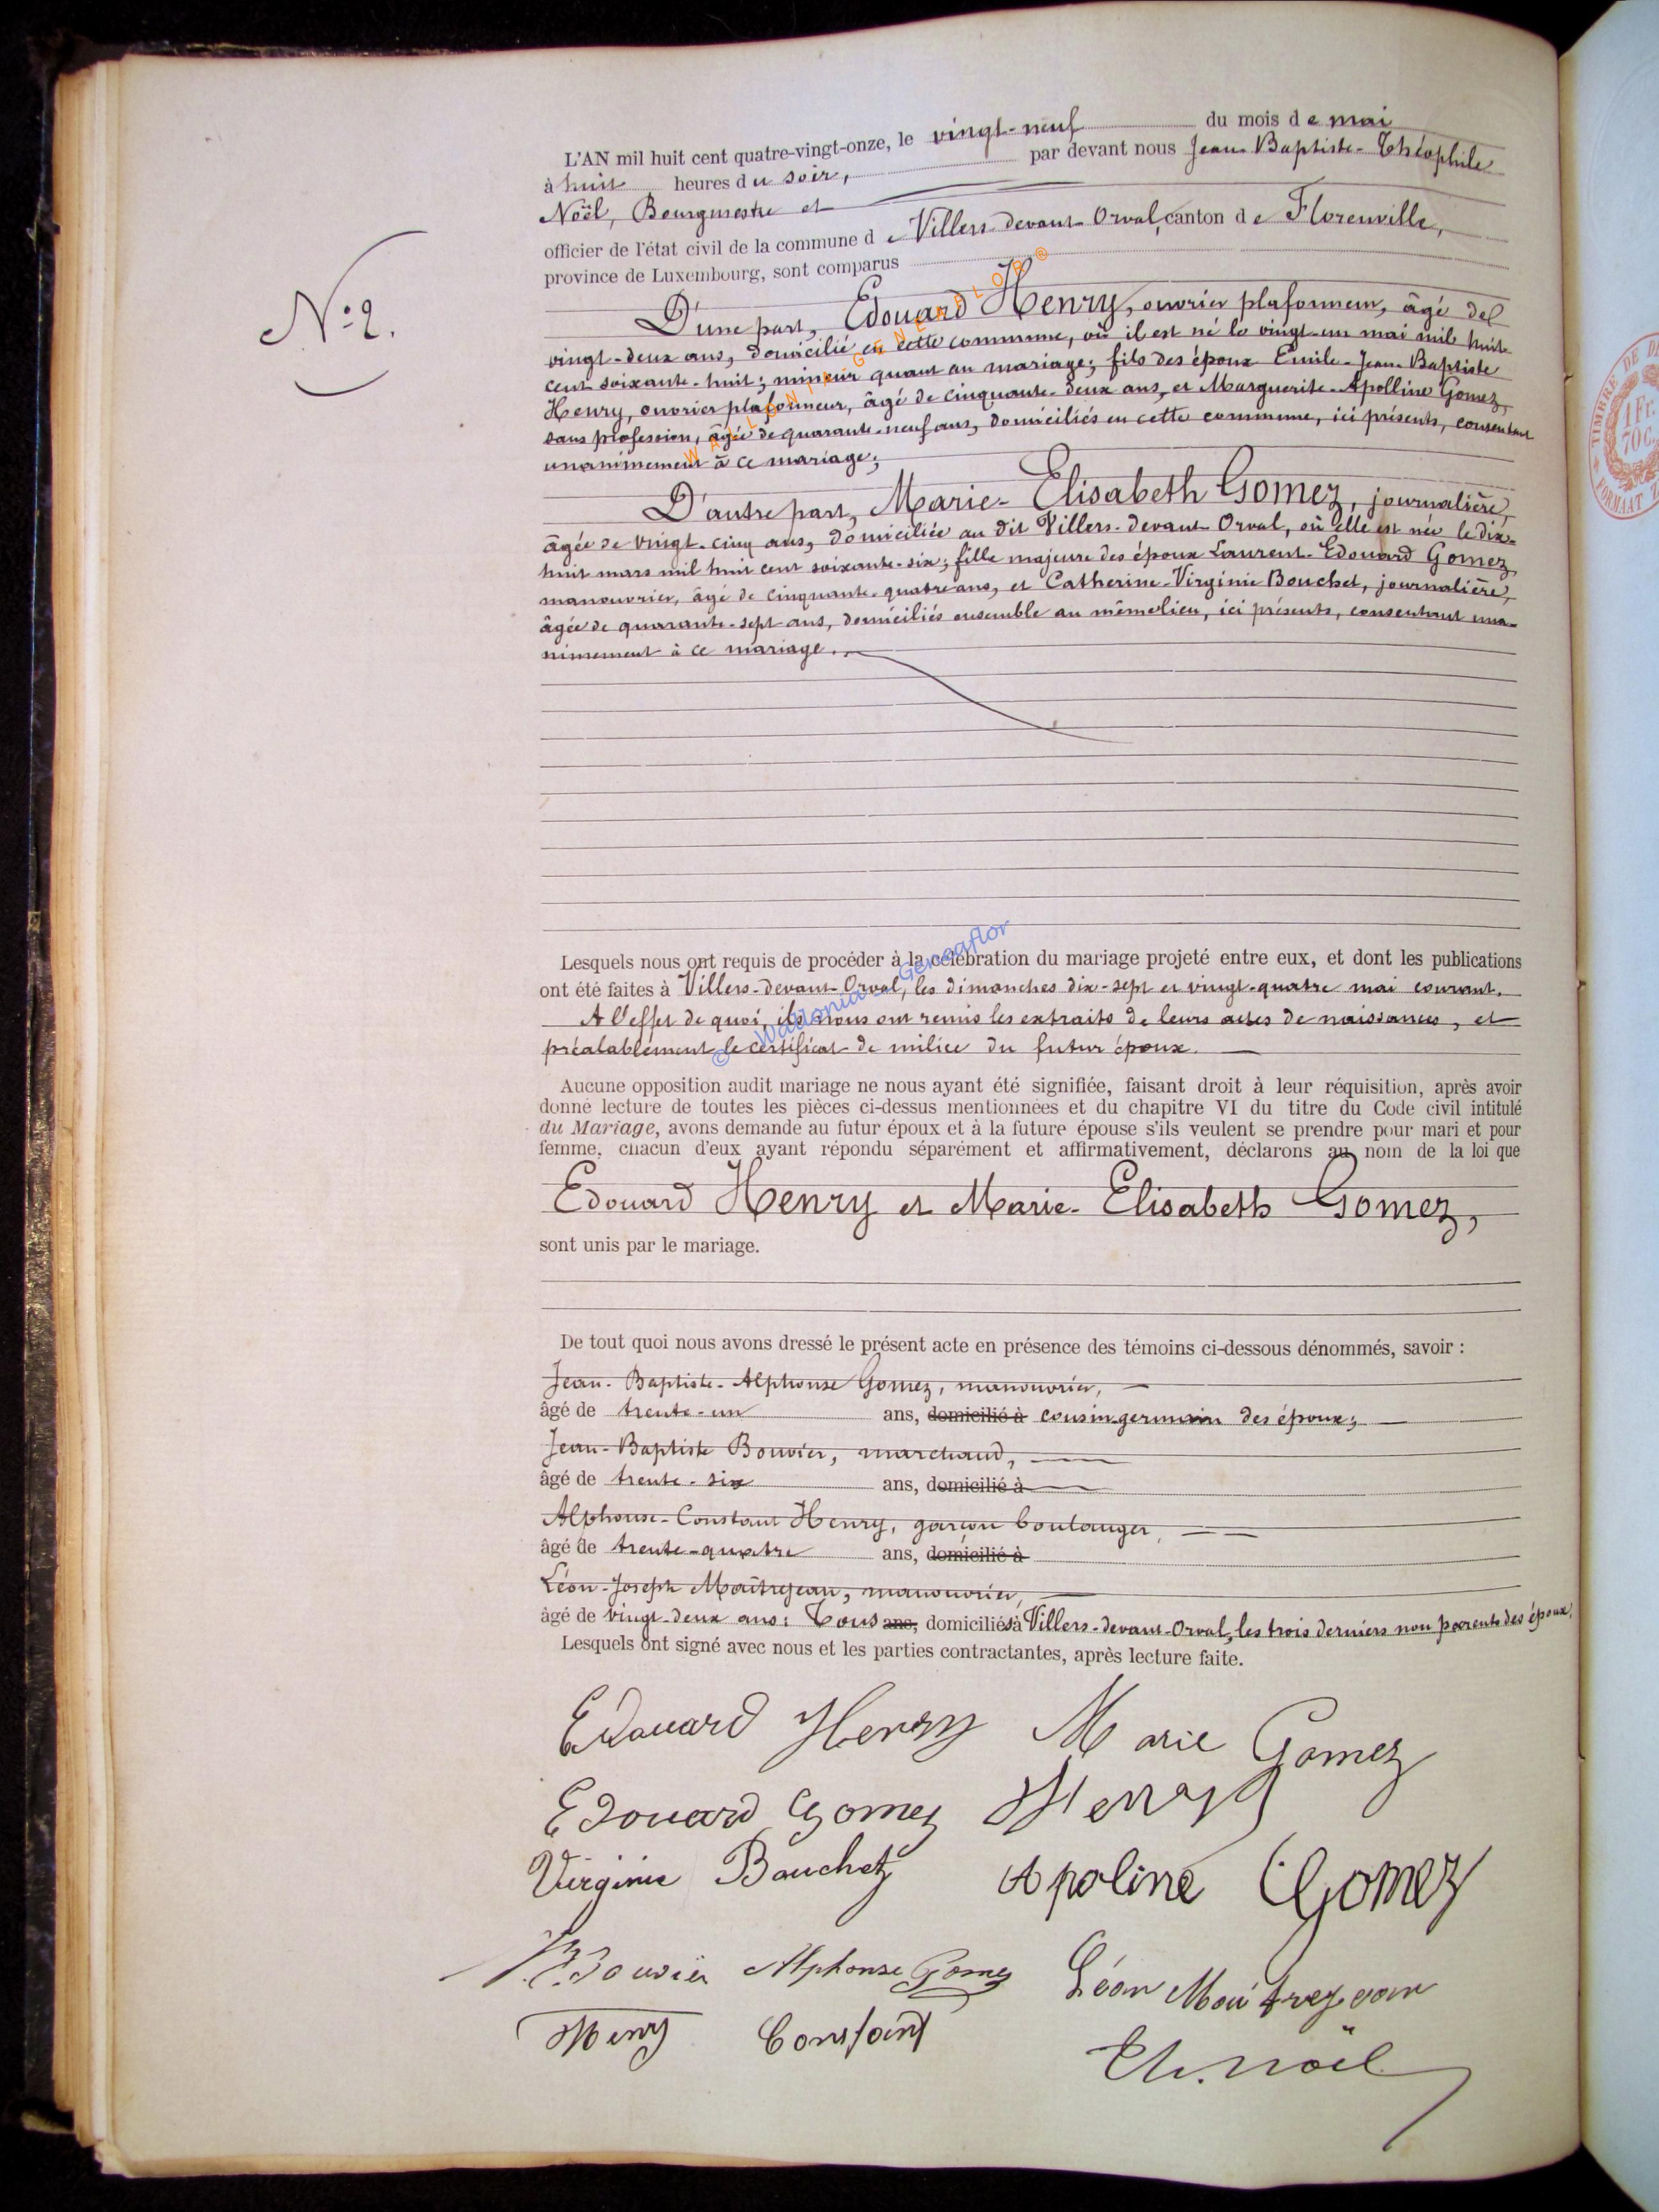 N° 2.
L'AN mil huit cent quatre-vingt-onze, le vingt-neuf du mois de mai
à huit heures du soir, par devant nous Jean-Baptiste-Théophile
Noël, Bourgmestre et
officier de l'état civil de la commune de Villers-devant-Orval, canton de Florenville,
province de Luxembourg, sont comparus
D'une part, Edouard Henry, ouvrier plafonneur, âgé de
vingt-deux ans, domicilié en cette commune, où il est né le vingt-un mai mil huit
cent soixante-huit; mineur quant au mariage; fils des époux Emile-Jean-Baptiste
Henry, ouvrier plafonneur, âgé de cinquante-deux ans, et Marguerite-Apolline Gomez,
sans profession, âgée de quarante-neuf ans, domiciliés en cette commune, ici présents, consentant
unanimement à ce mariage;
D'autre part, Marie-Elisabeth Gomez, journalière,
âgée de vingt-cinq ans, domiciliée au dit Villers-devant-Orval, où elle est née le dix-
huit mars mil huit cent soixante-six; fille majeure des époux Laurent-Edouard Gomez,
manouvrier, âgé de cinquante-quatre ans, et Catherine-Virginie Bouchet, journalière,
âgée de quarante-sept ans, domiciliés ensemble au même lieu, ici présents, consentant una-
nimement à ce mariage.
Lesquels nous ont requis de procéder à la célébration du mariage projeté entre eux, et dont les publications
ont été faites à Villers-devant-Orval, les dimanches dix-sept et vingt-quatre mai courant.
A l'effet de quoi, ils nous ont remis les extraits de leurs actes de naissances, et
préalablement le certificat de milice du futur époux.
Aucune opposition audit mariage ne nous ayant été signifiée, faisant droit à leur réquisition, après avoir
donné lecture de toutes les pièces ci-dessus mentionnées et du chapitre VI du titre du Code civil intitulé
du Mariage, avons demandé au futur époux et à la future épouse s'ils veulent se prendre pour mari et pour
femme, chacun d'eux ayant répondu séparément et affirmativement, déclarons au nom de la loi que
Edouard Henry et Marie-Elisabeth Gomez,
sont unis par le mariage.
De tout quoi nous avons dressé le présent acte en présence des témoins ci-dessous dénommés, savoir :
Jean-Baptiste-Alphonse Gomez, manouvrier,
âgé de trente-un ans, domicilié à cousin germain des époux;
Jean-Baptiste Bouvier, marchand,
âgé de trente-six ans, domicilié à
Alphonse-Constant Henry, garçon boulanger,
âgé de trente-quatre ans, domicilié à
Léon-Joseph Maîtrejean, manouvrier,
âgé de vingt-deux ans; Tous ans, domiciliés à Villers-devant-Orval, les trois derniers non parents des époux.
Lesquels ont signé avec nous et les parties contractantes, après lecture faite.
Edouard Henry Marie Gomez
Edouard Gomez Henry
Virginie Bouchet Apoline Gomez
Bouvier Alphonse Gomez Léon Maitrejean
Henry Constant
Th. Noël
WALLONIA GENEAFLOR ®
© Wallonia Geneaflor
TIMBRE DE D
1 Fr.
70 C.
FORMAAT Z